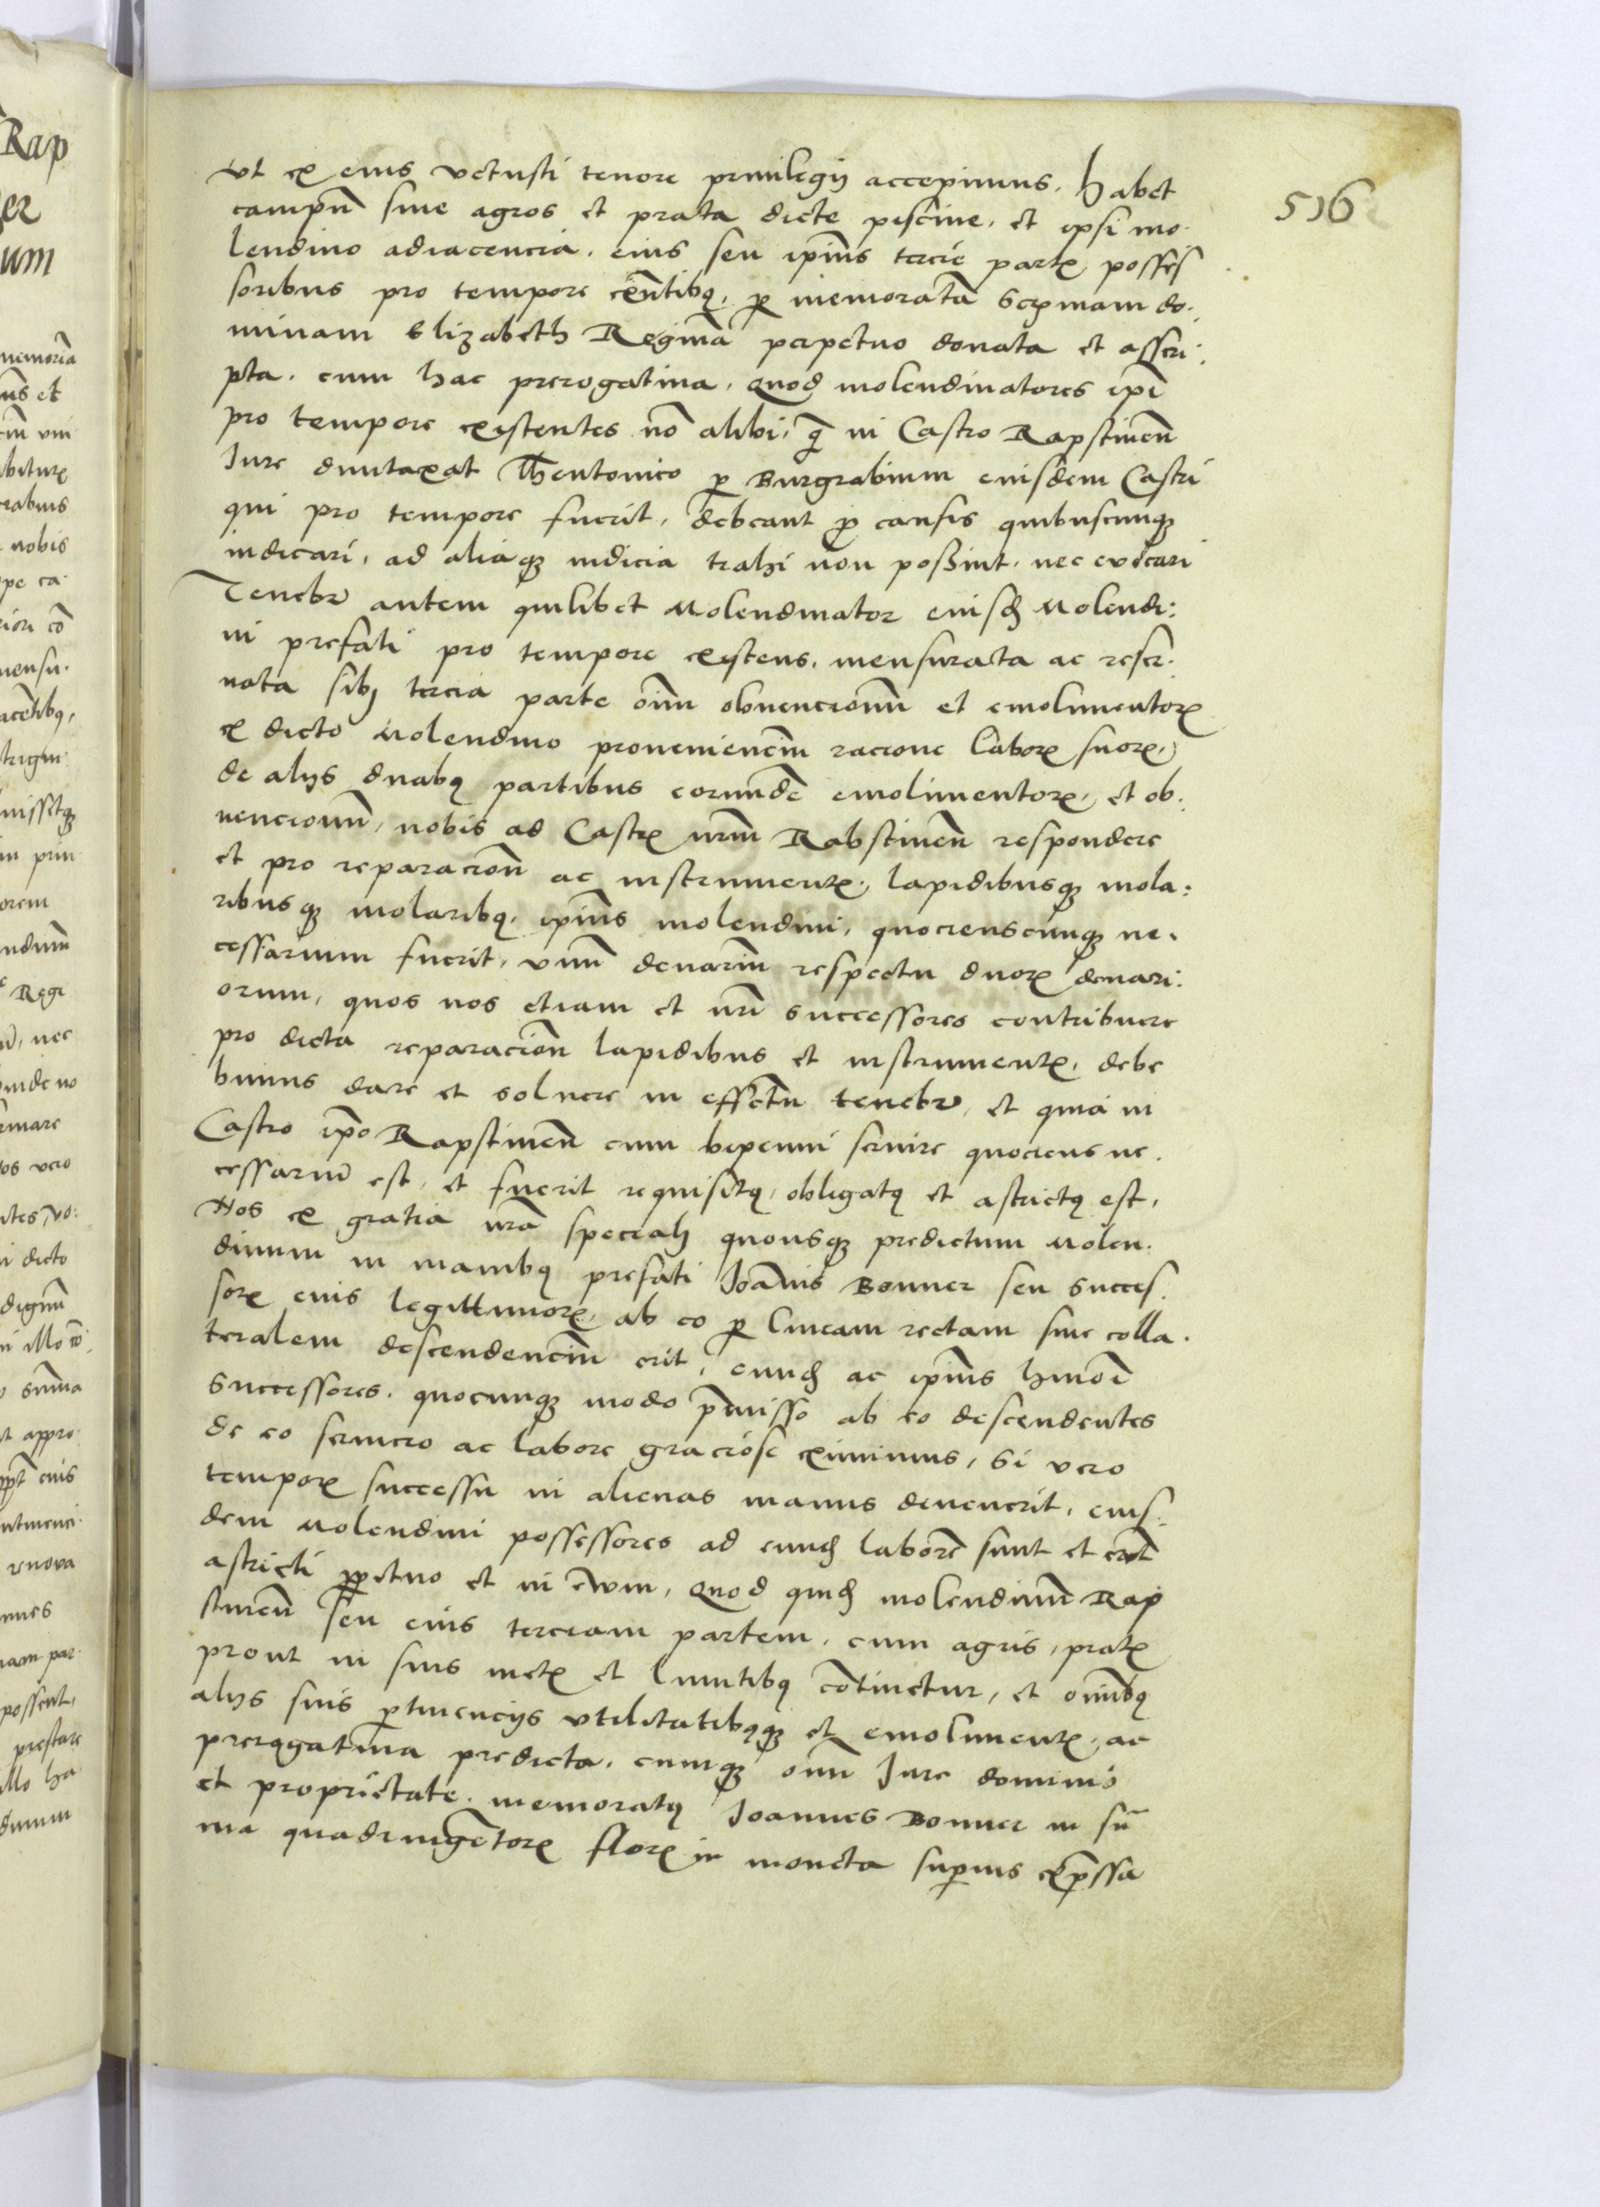 516
vt ex eius vetusti tenore priuilegij accepimus. habet
campū siue agros et prata dicte piscine. et ipsi mo-
lendino adiacencia. eius seu ipius tercie partis posses
soribus pro tempore exntibus. per memoratā Serenmam do-
minam Elizabeth Reginā perpetuo donata et asscri-
pta. cum hac prerogatiua. quod molendinatores ipi
pro tempore existentes nō alibi, quā in Castro Rapstinen
Iure duntaxat Theutonico per Burgrabium eiusdem Castri
qui pro tempore fuerit, debeant pro causis quibuscunque
iudicari, ad aliaque iudicia trahi non possint. nec euocari
Tenebitur autem quilibet Molendinator eiusdem Molendi-
ni prefati pro tempore existens. mensurata ac reser-
uata sibj tercia parte oīm obuencionum et emolimentorum
ex dicto Molendino proueniencim racione laborum suorum,
de alijs duabus partibus eorundē emolimentorum, et ob-
uencionum, nobis ad Castrum nrm Rabstinen respondere
et pro reparacion ac instrumentis, lapidibusque mola-
ribusque molaribus. ipius molendini, quocienscunque ne-
cessarium fuerit, vnum denarium respectu duorum denari-
orum, quos nos etiam et nri successores contribuere
pro dicta reparacion lapidibus et instrumentis, debe
bimus dare et soluere in effectu tenebitur, et quia in
Castro ipo Rapstinen cum bipenni seruire quociens ne-
cessariū est, et fuerit requisitus, obligatus et astrictus est,
Nos ex gratia nra specialj quousque predictum Molen-
dinum in manibus prefati Ioannis Bonner seu succes-
sorum eius legittimorum, ab eo per lineam rectam siue colla-
teralem descendencim erit, eundem ac ipius hmoi
successores. quocunque modo premisso ab eo descendentes
de eo seruicio ac labore graciose eximimus, Si vero
temporis successu in alienas manus deuenerit, eius-
dem Molendini possessores ad eundem laborē sunt et erūt
astricti perpetuo et in euum. quod quidem molendinum Rap
stinen seu eius terciam partem, cum agris, pratis
prout in suis metis et limitibus continetur, et omnibus
alijs suis pertinencijs vtilitatibusque et emolimentis, ac
prerogatiua predicta. cumque omni Iure dominio
et proprietate. memoratus Ioannes Bonner in sū
ma quadringentorum florenorum in moneta superius expressa